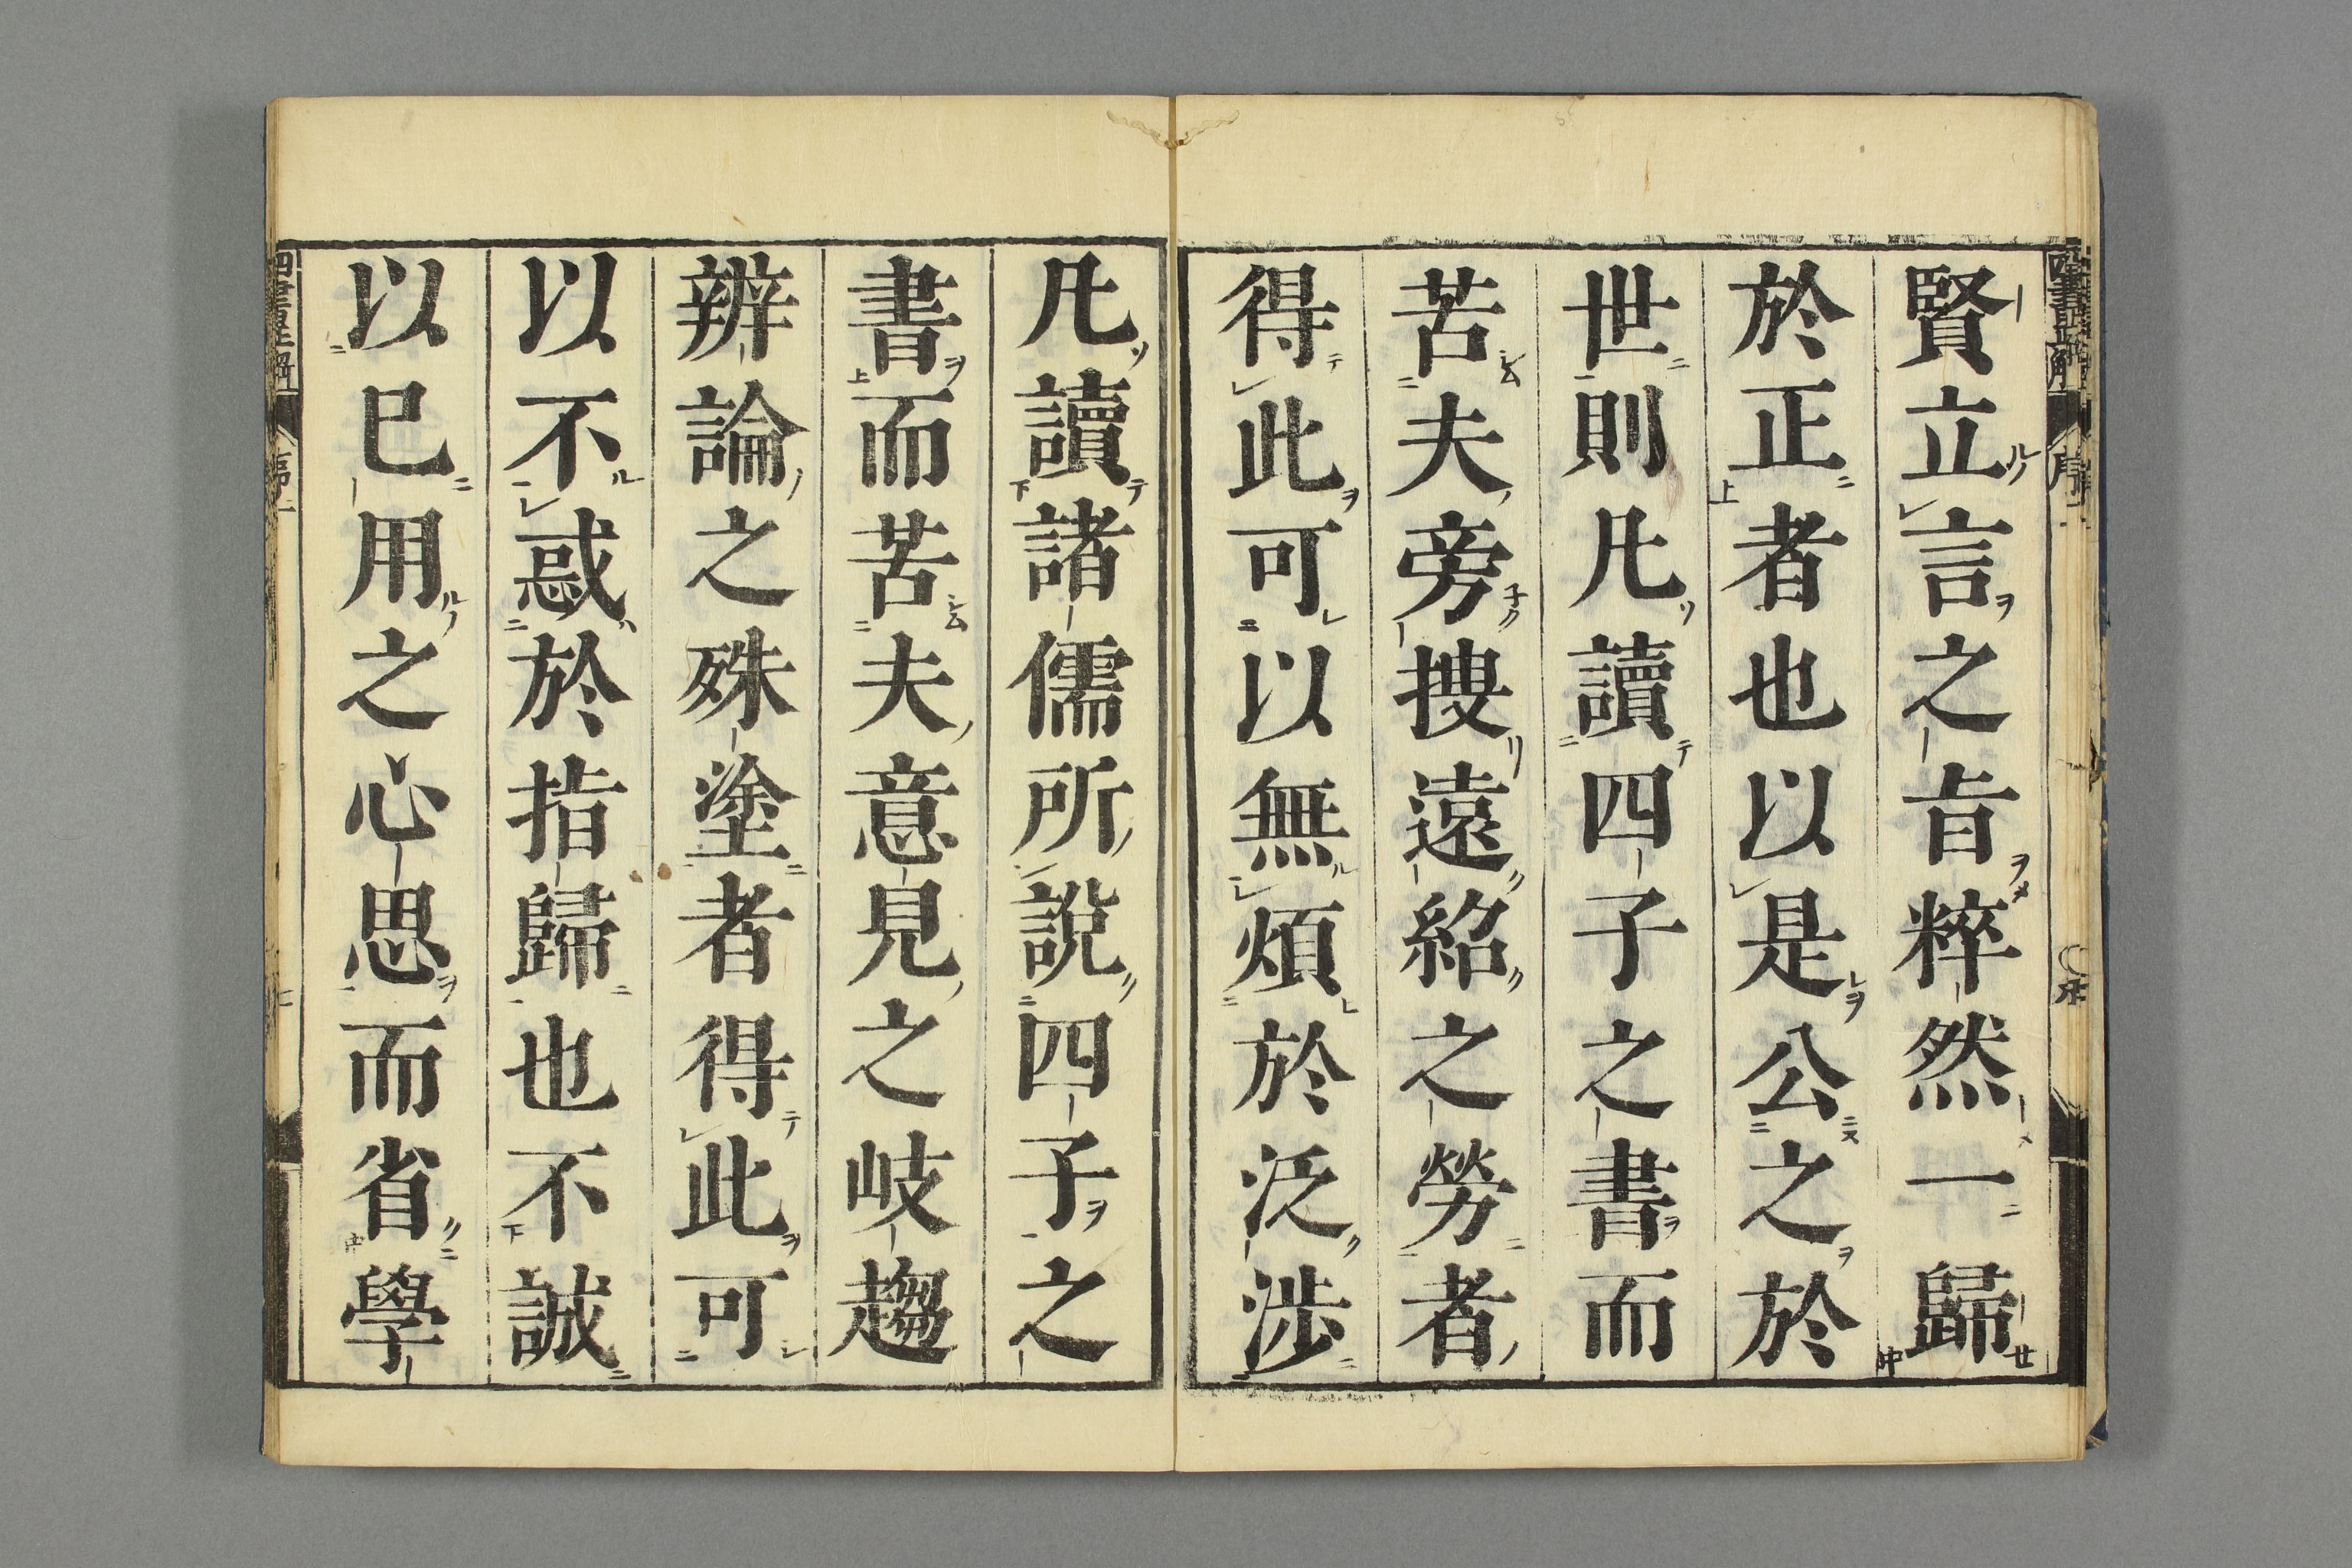 賢立言之㫖粹然一歸
於正者也以是公之於
世則凢讀四子之書而
苦夫旁搜遠紹之勞者
得此可以無煩於泛涉
凢讀諸儒所說四子之
書而苦夫意見之岐趨
辨論之殊塗者得此可
以不惑於指歸也不誠
以已用之心思而省學